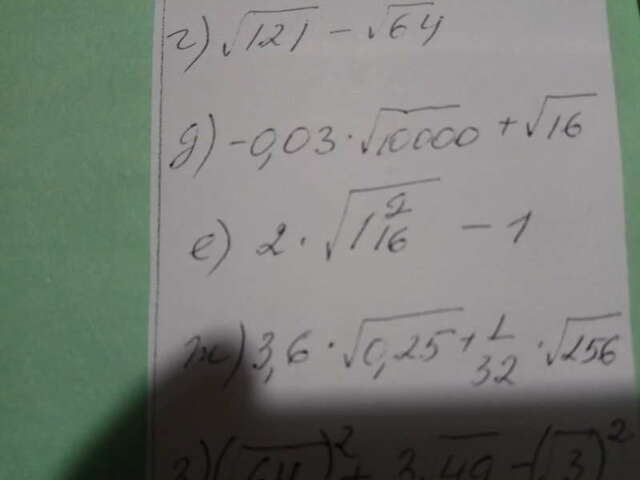 г) √121 - √64
д) -0,03 · √10000 + √16
е) 2 · √1 9/16 - 1
ж) 3,6 · √0,25 + 1/32 · √256
з) (√64)² + 3√49 - (√3)²